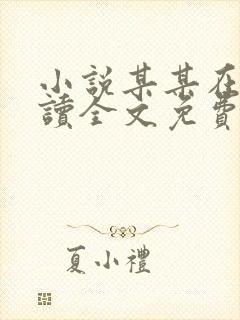 小說某某在
讀全文免費
夏小禮